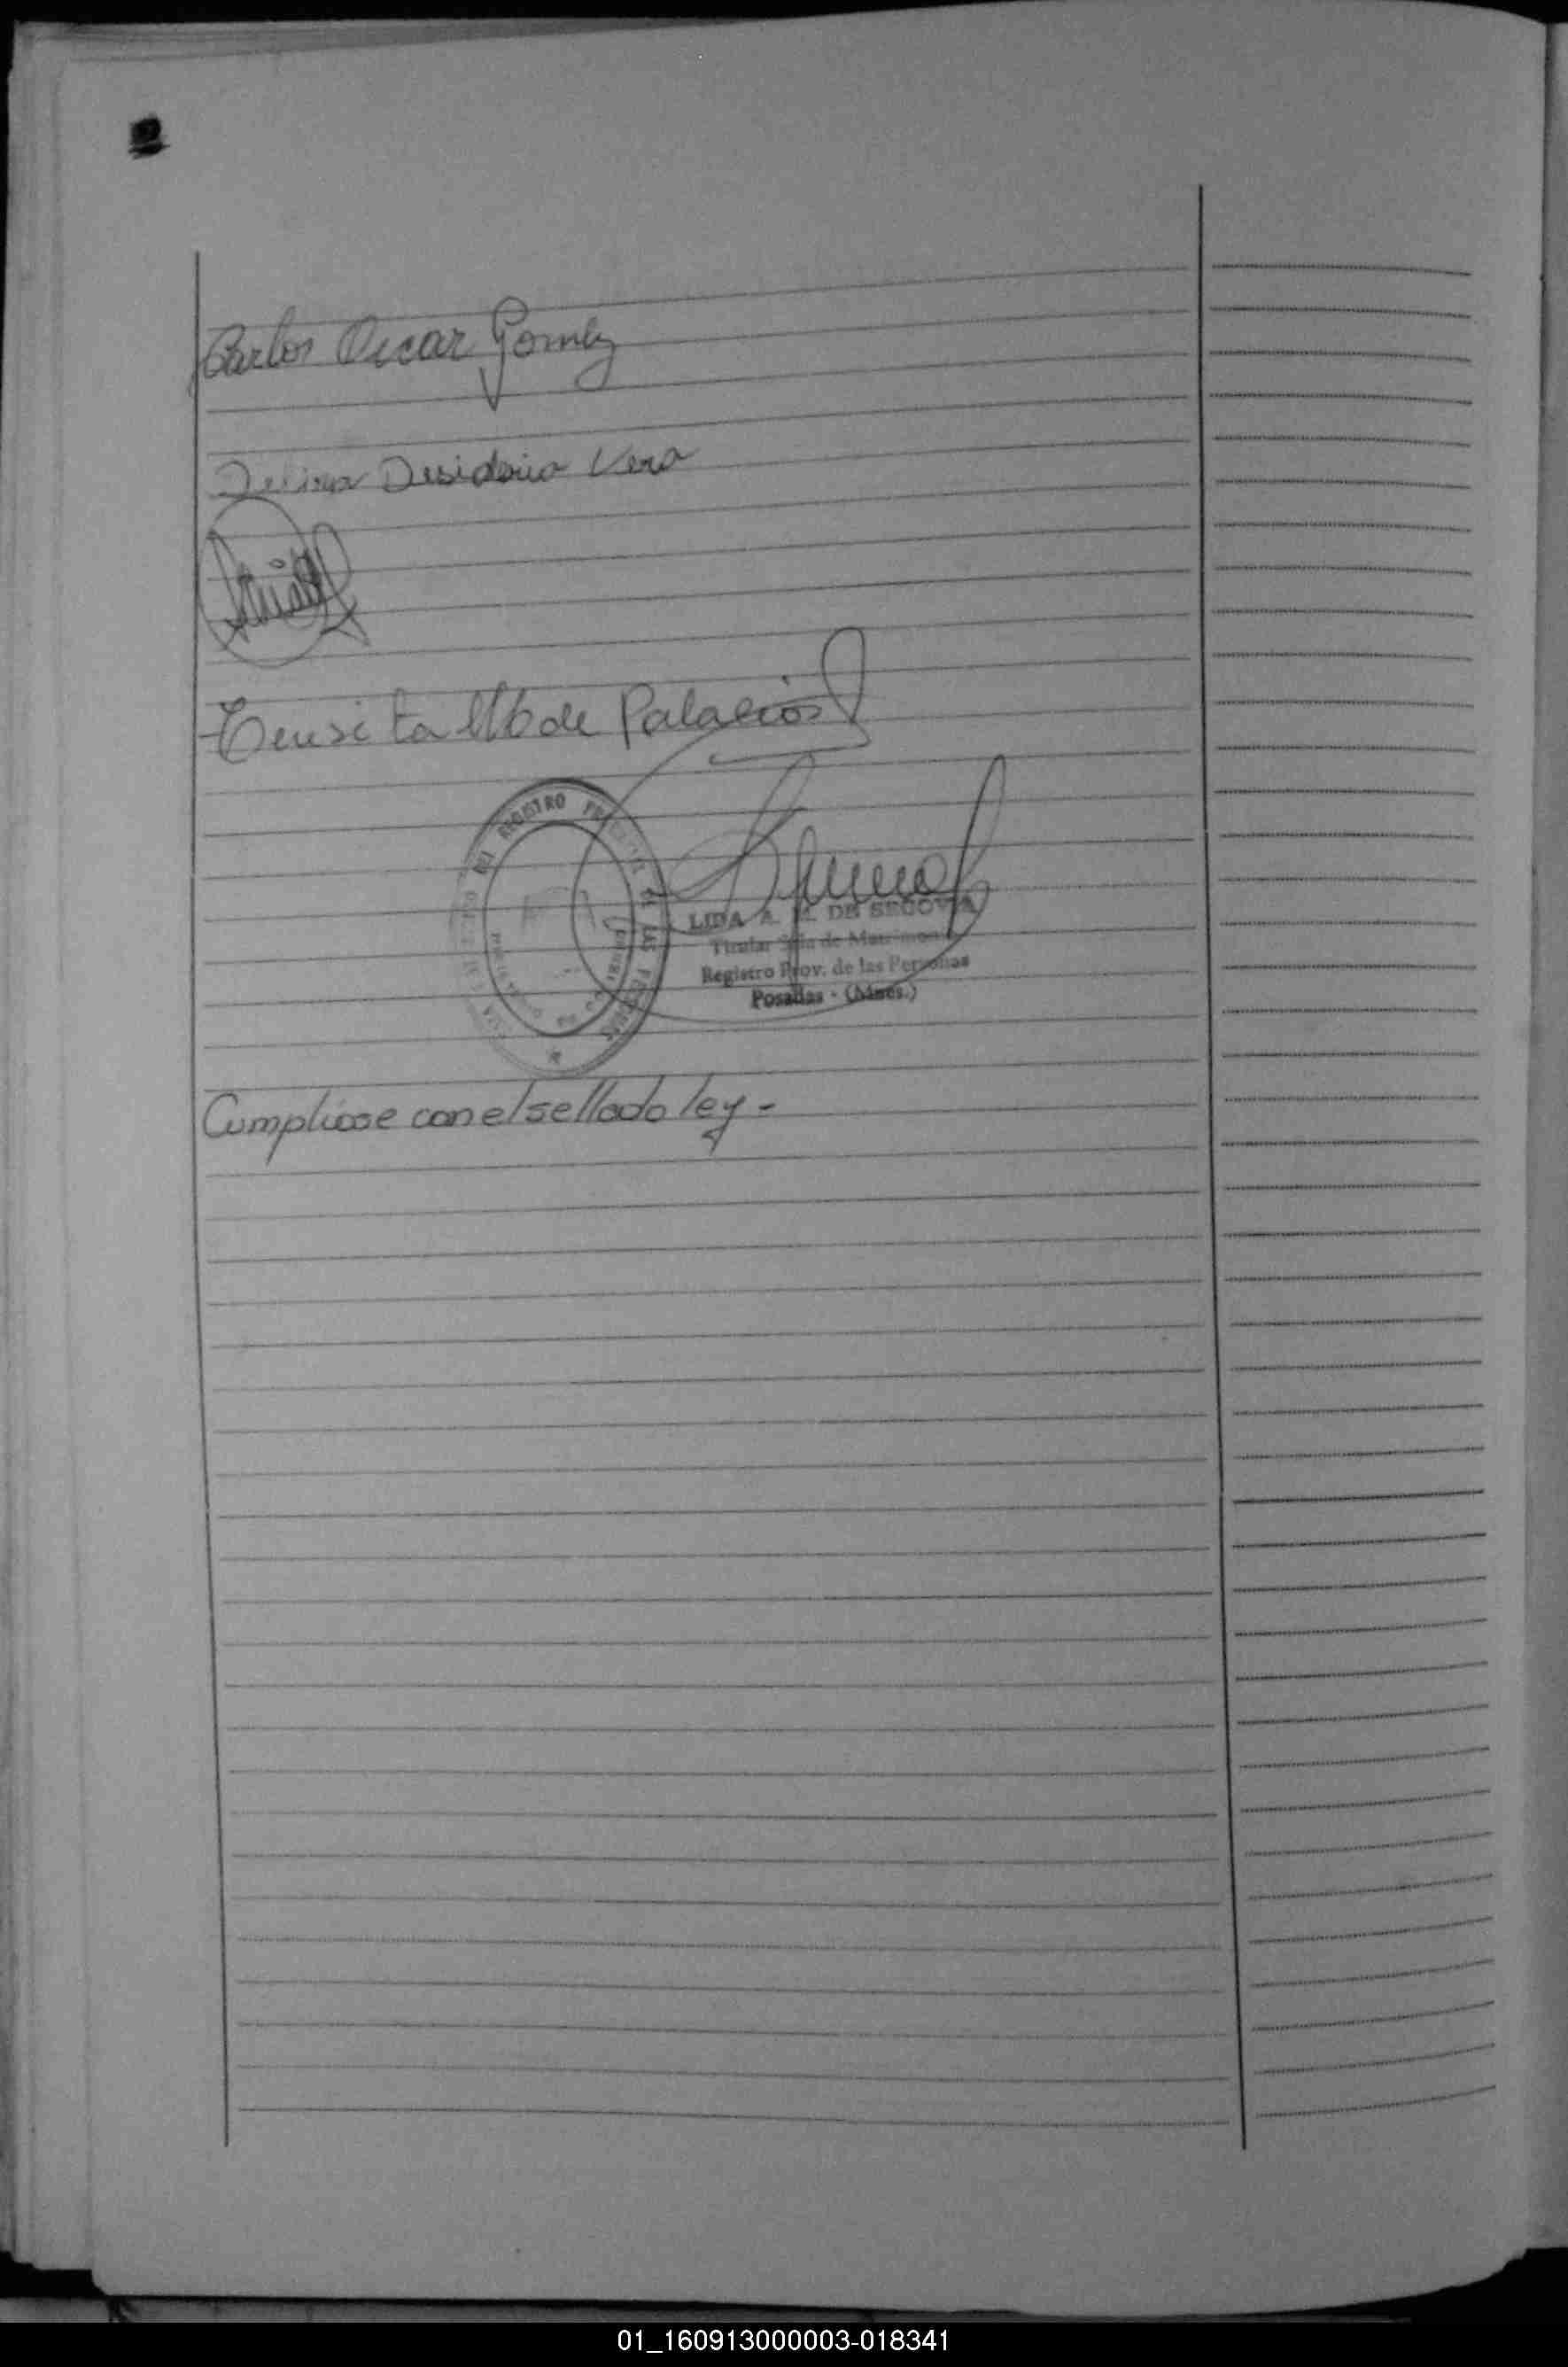 Carlos Oscar Gomez
Desideria Vera
Teresita M6 de Palacios
REGISTRO
LIDA A. M. DE SEGOVIA
Titular Sala de Matrimonios
Registro Prov. de las Personas
Posadas - (Mnes.)
Cumpliose con el sellado ley -
01_160913000003-018341